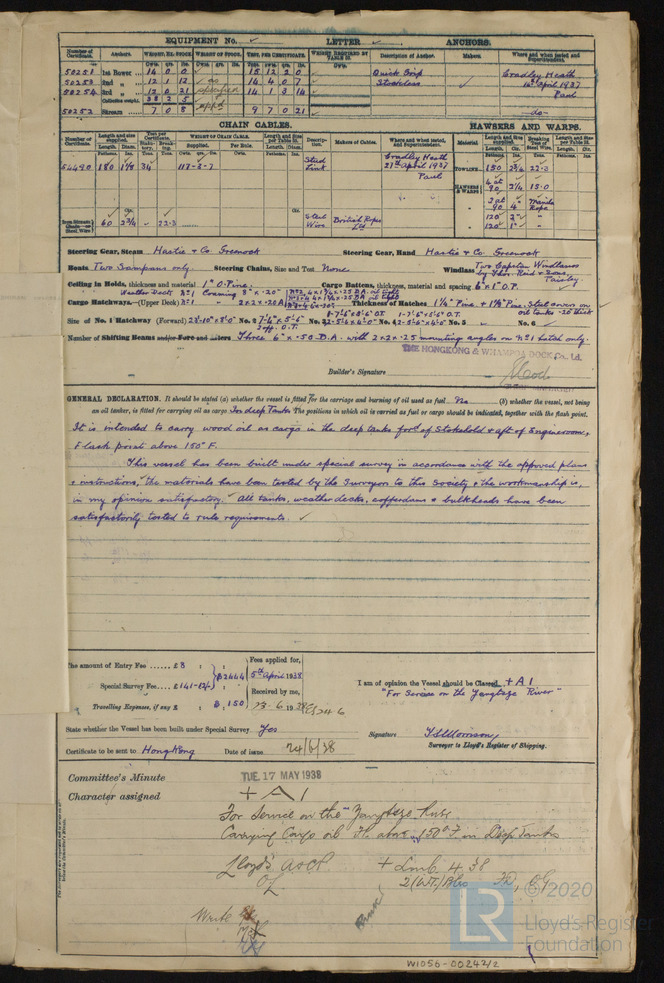 EQUIPMENT No. LETTER ANCHORS.
Number of Certificate. Anchors. WEIGHT, EX. STOCK WEIGHT OF STOCK. TEST, PER CERTIFICATE. WEIGHT REQUIRED BY TABLE 22. Description of Anchor. Makers. Where and when tested and Superintendent.
50251 1st Bower 14 0 0 15 12 2 0 Quick Grip Cradley Heath
50253 2nd " 12 1 12 14 4 0 7 Stockless 14th April 1937
50254 3rd " 12 0 21 14 1 3 14 Paul
Collective weight. 38 2 5
50252 Stream 7 0 8 9 7 0 21 -do-
CHAIN CABLES. HAWSERS AND WARPS.
Number of Certificate. Length and size supplied. Test per Certificate. WEIGHT OF CHAIN CABLE. Length and Size per Table 22. Description. Makers of Cables. Where and when tested, and Superintendent. Material Length and Size supplied. Breaking Test of Steel Wire. Length and Size per Table 22.
54490 180 1 1/8 34 117-2-7 Stud Link Cradley Heath 21st April 1937 Paul
TOWLINE 150 2 3/4 22-3
HAWSERS & WARPS 4 at 90 2 1/4 15-0
3 at 90 4" Manila Rope
120 2"
120 1"
60 2 3/4 22-3 Steel Wire British Ropes Ltd
Steering Gear, Steam Hastie & Co. Greenock Steering Gear, Hand Hastie & Co. Greenock
Boats Two Sampans only. Steering Chains, Size and Test None Windlass Two Capstan Windlasses by Thos. Reid & Sons, Paisley.
Ceiling in Holds, thickness and material 1" O. Pine. Cargo Battens, thickness, material and spacing 6" x 1" O.P.
Cargo Hatchways.—(Upper Deck) Thickness of Hatches 1 1/4" Pine + 1 1/8" Pine. Steel covers on oil tanks .25 thick
Size of No. 1 Hatchway (Forward) 23'-10" x 8'-0" No. 2 7'-6" x 5'-6" No. 3 No. 4 No. 5 No. 6
Number of Shifting Beams and/or Fore and Afters Three 6" x .50 B.A. with 2 x 2 x .25 mounting angles on No 1 hatch only.
THE HONGKONG & WHAMPOA DOCK Co. Ltd.
Builder's Signature
GENERAL DECLARATION. It should be stated (a) whether the vessel is fitted for the carriage and burning of oil used as fuel No (b) whether the vessel, not being
an oil tanker, is fitted for carrying oil as cargo In deep Tanks The positions in which oil is carried as fuel or cargo should be indicated, together with the flash point.
It is intended to carry wood oil as cargo in the deep tanks ford of Stokehold & aft of Engineroom,
Flash point above 150° F.
This vessel has been built under special survey in accordance with the approved plans
& instructions, the materials have been tested by the Surveyor to this Society & the workmanship is,
in my opinion satisfactory. All tanks, weatherdecks, cofferdams & bulkheads have been
satisfactorily tested to rule requirements.
The amount of Entry Fee ...... £8 Fees applied for,
$2444 5th April 1938
Special Survey Fee.... £141-12/- Received by me,
Travelling Expenses, if any £ $ 150 13.6.1938
I am of opinion the Vessel should be Classed +A1
"For Service on the Yangtsze River"
State whether the Vessel has been built under Special Survey. Yes Signature
Surveyor to Lloyd's Register of Shipping.
Certificate to be sent to HongKong Date of issue 24/6/38
Committee's Minute TUE. 17 MAY 1938
Character assigned +A1
For Service on the "Yangtsze River
Carrying Cargo oil F.P. above 150° F in Deep Tanks
Lloyd's A&CP + LMC 4.38
OL FD, CG
Write
©2020
LR
Lloyd's Register
Foundation
W1056-00242/2